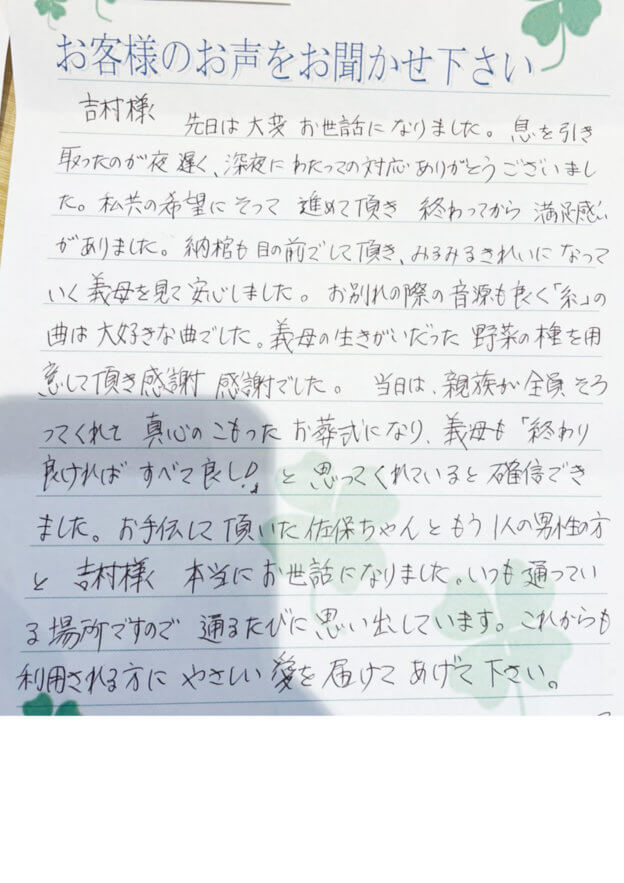 お客様のお声をお聞かせ下さい
吉村様 先日は大変 お世話になりました。息を引き
取ったのが夜遅く、深夜にわたっての対応ありがとうございまし
た。私共の希望にそって 進めて頂き 終わってから 満足感
がありました。納棺も目の前でして頂き、みるみるきれいになって
いく義母を見て安心しました。お別れの際の音源も良く「糸」の
曲は大好きな曲でした。義母の生きがいだった 野菜の種を用
意して頂き感謝 感謝でした。 当日は、親族が全員そろ
ってくれて 真心のこもった お葬式になり、義母も「終わり
良ければ すべて良し!」と思ってくれていると確信でき
ました。お手伝して頂いた佐保ちゃんともう1人の男性の方
と 吉村様 本当にお世話になりました。いつも通ってい
る場所ですので 通るたびに思い出しています。これからも
利用される方に やさしい愛を届けて あげて下さい。